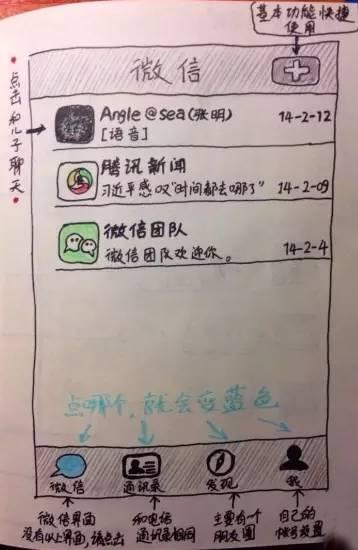 基本功能快捷
使用
微信
点击和儿子聊天
Angle@sea(张明) 14-2-12
[语音]
腾讯新闻
习近平感叹"时间都去哪了" 14-2-09
微信团队
微信团队欢迎你。 14-2-4
点哪个,就会变蓝色
微信 通讯录 发现 我
微信界面
没有以上界面,请点击
和电话
通讯录相同
主要有一个
朋友圈
自己的
帐号设置